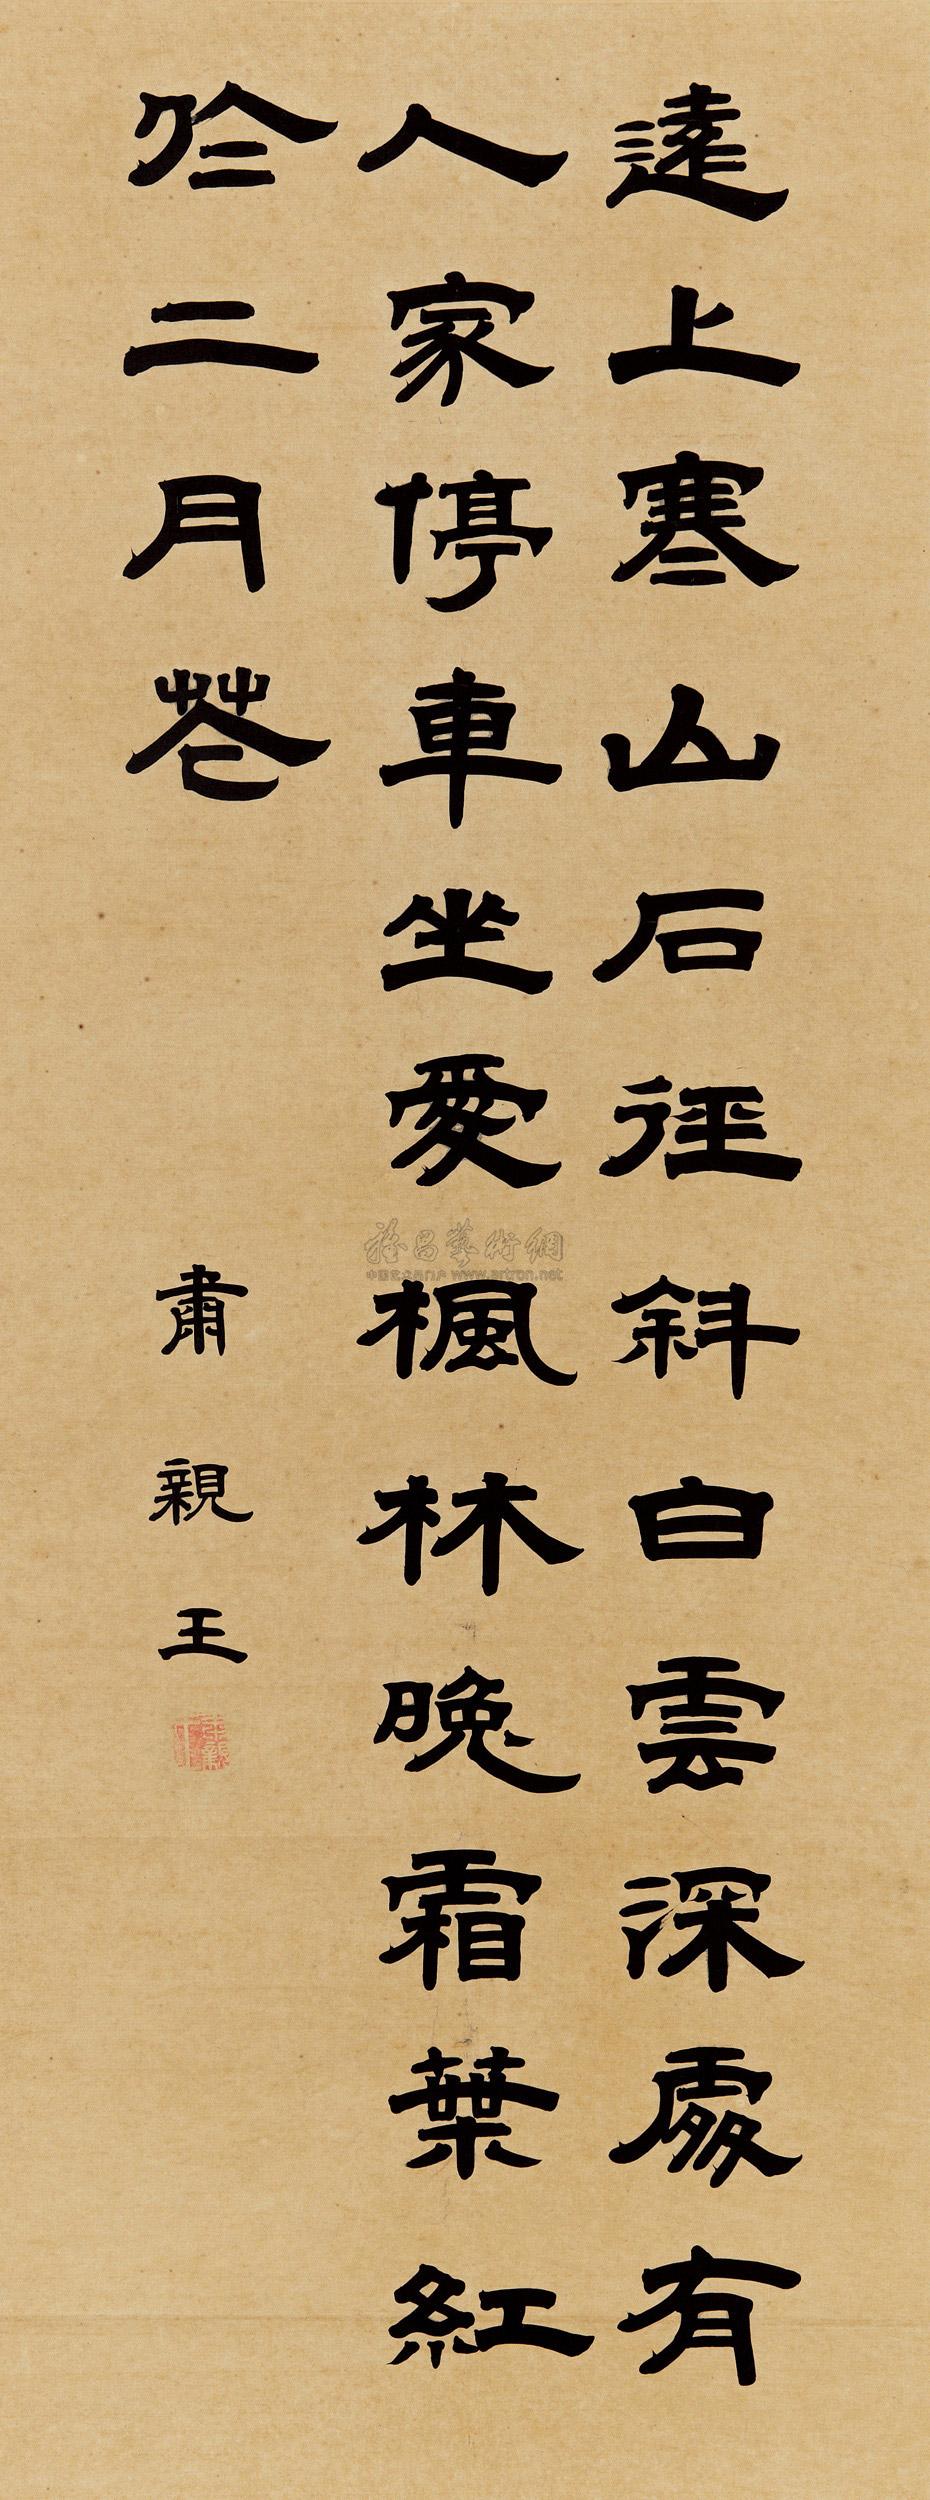 遠上寒山石徑斜白雲深處有
人家停車坐愛楓林晚霜葉紅
於二月花
肅親王
雅昌藝術網
中国艺术品门户 www.artron.net